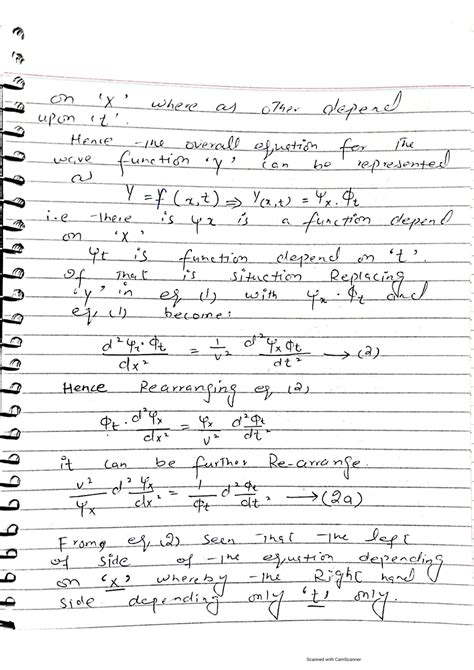 on 'x' where as other depend
upon 't'.
Hence the overall equation for the
wave function 'y' can be represented
as
Y = f (x,t) ⇒ Y(x,t) = Ψx . Φt
i.e there is ψx is a function depend
on 'x'
ψt is function depend on 't'.
Of that is situction Replacing
'y' in eq (1) with ψx . Φt and
eq (1) become:
d²Ψx·Φt/dx² = 1/v² d²Ψx Φt/dt² → (2)
Hence Rearranging eq (2)
Φt . d²Ψx/dx² = Ψx/v² d²Φt/dt²
it can be further Re-arrange.
v²/Ψx d²Ψx/dx² = 1/Φt d²Φt/dt² → (2a)
From eq (2) seen that the left
of side of the equation depending
on 'x' whereby the Right hand
side depending only 't' only.
Scanned with CamScanner